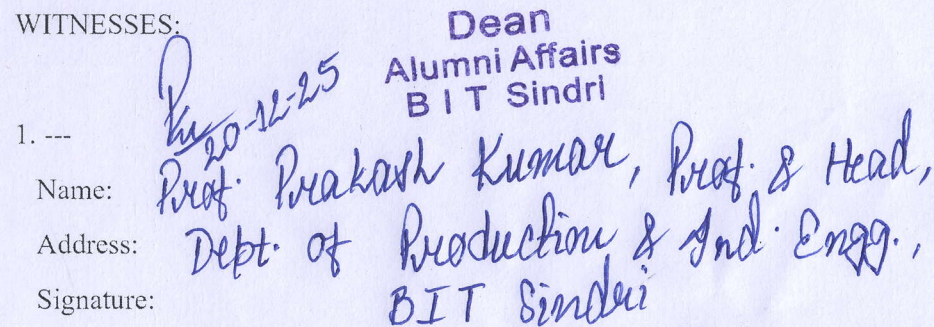 WITNESSES:
Dean
Alumni Affairs
B I T Sindri
20-12-25
1. ---
Name: Prof. Prakash Kumar, Prof. & Head,
Address: Deptt. of Production & Ind. Engg.,
Signature: BIT Sindri